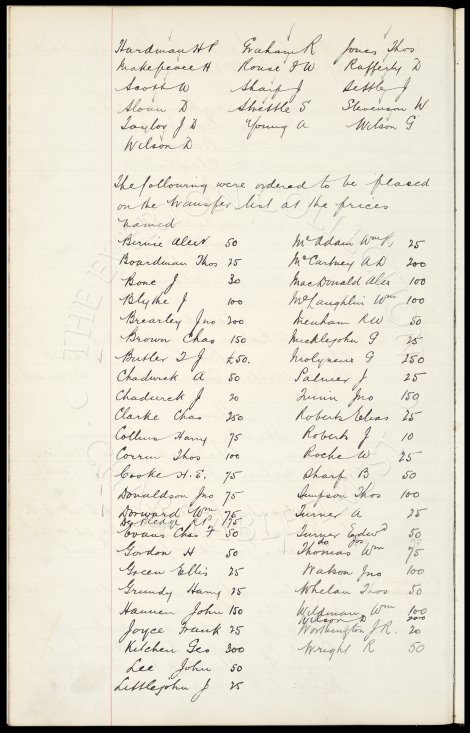 Hardman H P Graham R Jones Thos
Makepeace H Rouse F W Rafferty D
Scott W Sharp J Settle J
Sloan D Strettle S Stevenson W
Taylor J D Young A Wilson G
Wilson D
The following were ordered to be placed
on the transfer list at the prices
named
Birnie Alex 50 McAdam Wm P, 25
Boardman Thos 25 McCartney A D 200
Bone J 30 MacDonald Alex 100
Blythe J 100 McLaughlin Wm 100
Brearley Jno 200 Menham R W 50
Brown Chas 150 Mucklejohn G 25
Butler T J £50. Molyneux G 250
Chadwick A 50 Palmer J 25
Chadwick J 20 Quinn Jno 150
Clarke Chas 250 Roberts Elias 25
Collins Harry 75 Roberts J 10
Corrin Thos 100 Roche W 25
Cooke H. E. 75 Sharp B 50
Donaldson Jno 75 Simpson Thos 100
Dorward Wm 75 Turner A 25
R. P. 175
Evans Chas F 50 Turner Edwd 50
Gordon H 50 Thomas Wm 75
Green Ellis 25 Watson Jno 100
Grundy Harry 25 Whelan Thos 50
Hannen John 150 Wildman Wm 100
Wilson D 200
Joyce Frank 25 Worthington J R. 20
Kitchen Geo 300 Wright R 50
Lee John 50
Littlejohn J 25